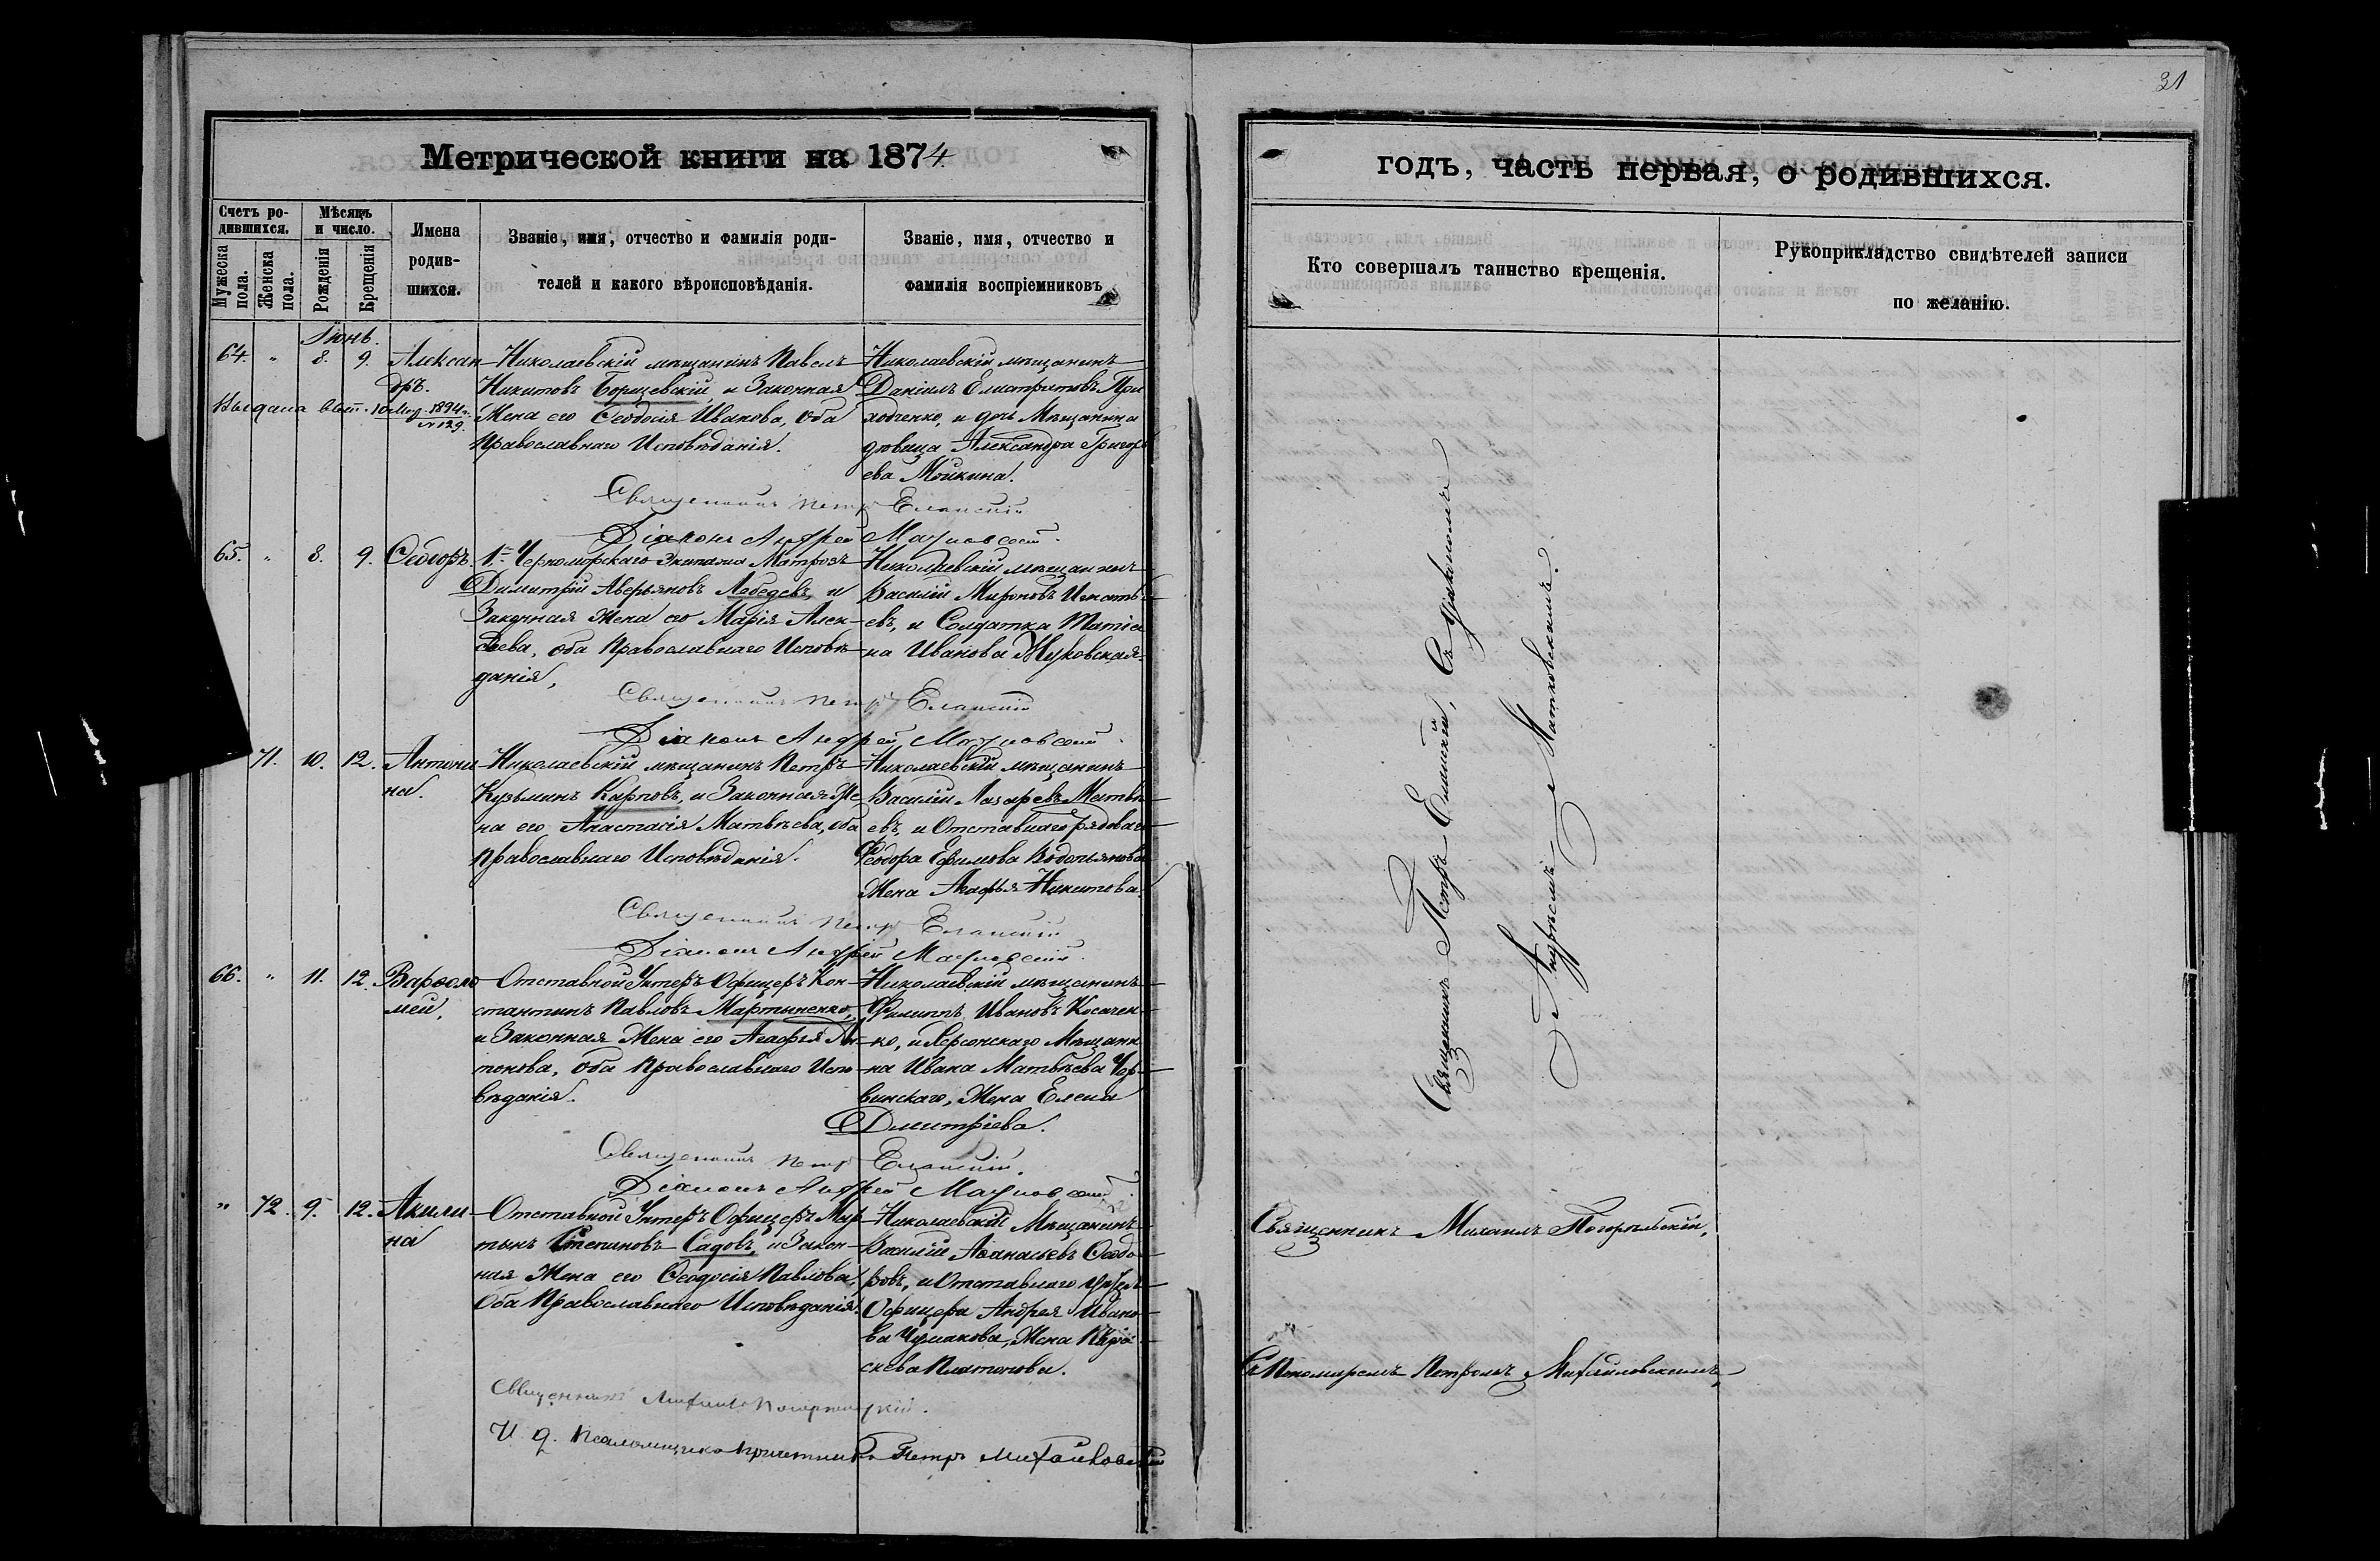 31
Метрической книги на 1874
годъ, часть первая, о родившихся.
Счетъ ро-
дившихся.
Мужеска пола.
Женска пола.
Мѣсяцъ
и число.
Рожденія
Крещенія
Имена
родив-
шихся.
Званіе, имя, отчество и фамилія роди-
телей и какого вѣроисповѣданія.
Званіе, имя, отчество и
фамилія воспріемниковъ
Кто совершалъ таинство крещенія.
Рукоприкладство свидѣтелей записи
по желанію.
Іюнь.
64. " 8. 9. Алексан
дръ.
Выдана 1894 г.
№ 129.
Николаевскій мѣщанинъ Павелъ
Никитовъ Борщевскій, и Законная
Жена его Ѳеодосія Иванова, Оба
Православнаго Исповѣданія.
Николаевскій мѣщанинъ
Даніилъ Елистратовъ При
ходченко, и дочь Мѣщанина
дѣвица Александра Григорь
ева Мойкина.
Священникъ Петръ Еланскій
Діаконъ Андрей
65. " 8. 9. Ѳеодоръ.
1го Черноморскаго Экипажа Матрозъ
Димитрій Аверьяновъ Лебедевъ, и
Законная Жена его Марія Алек-
сѣева, оба Православнаго Исповѣ-
данія,
Николаевскій мѣщанинъ
Василій Мироновъ Игнать
евъ, и Солдатка Матіа
на Иванова Жуковская.
Священникъ Петръ Еланскій
Діаконъ Андрей
71. 10. 12. Антони
на.
Николаевскій мѣщанинъ Петръ
Кузьминъ Карповъ, и Законная Же
на его Анастасія Матвѣева, оба
Православнаго Исповѣданія.
Николаевскій мѣщанинъ
Василій Лазаревъ Матвѣ
евъ, и Отставнаго рядоваго
Ѳеодора Ефимова Водопьянова
Жена Агафья Никитова.
Священникъ Петръ Еланскій
Діаконъ Андрей
66. " 11. 12. Варѳоло
мей.
Отставной Унтеръ Офицеръ Кон-
стантинъ Павловъ Мартыненко,
и Законная Жена его Агафья Ан-
тонова, Оба Православнаго Испо-
вѣданія.
Николаевскій мѣщанинъ
Филиппъ Ивановъ Косачен
ко, и Херсонскаго Мѣщани
на Ивана Матвѣева Чер
винскаго, Жена Елена
Дмитріева.
Священникъ Петръ Еланскій.
Діаконъ Андрей
" 72. 9. 12. Акили
на
Отставной Унтеръ Офицеръ Мар
тынъ Степановъ Садовъ, и Закон-
ная Жена его Ѳеодосія Павлова,
Оба Православнаго Исповѣданія.
Николаевскій Мѣщанинъ
Василій Аѳанасьевъ Ѳеодо
ровъ, и Отставнаго Унтеръ
Офицера Андрея Ивано
ва Чумакова, Жена Пара
скева Платонова.
Священникъ Михаилъ
И. д. Псаломщика Причетникъ Петръ Михайловскій
Священникъ Петръ Еланскій, Съ Діакономъ
Андреемъ
Священникъ Михаилъ Погорѣльскій,
Съ Пономаремъ Петромъ Михайловскимъ,